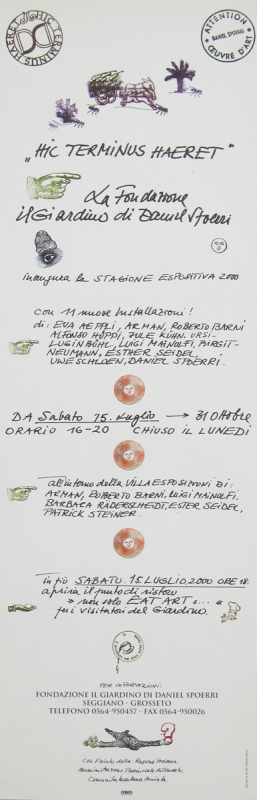 ATTENTION
DANIEL SPOERRI
ŒUVRE D'ART
„HIC TERMINUS HAERET"
La Fondazione
il Giardino di Daniel Spoerri
inaugura la STAGIONE ESPOSITIVA 2000
con 11 nuove Installazioni!
di: EVA AEPPLI, ARMAN, ROBERTO BARNI
ALFONSO HÜPPI, JULE KÜHN, URSI-
LUGINBÜHL, LUIGI MAINOLFI, BIRGIT-
NEUMANN, ESTHER SEIDEL,
UWE SCHLOEN, DANIEL SPOERRI.
DA Sabato 15. Luglio → 31 Ottobre
ORARIO 16-20 CHIUSO IL LUNEDI
all'interno della VILLA ESPOSIZIONI DI:
ARMAN, ROBERTO BARNI, LUIGI MAINOLFI,
BARBARA RÄDERSCHEIDT, ESTER SEIDEL,
PATRICK STEINER.
in più SABATO 15 LUGLIO 2000 ORE 18.
aprirà il punto di ristoro
» non solo EAT ART «...
per i visitatori del Giardino.
PER INFORMAZIONI:
FONDAZIONE IL GIARDINO DI DANIEL SPOERRI
SEGGIANO · GROSSETO
TELEFONO 0564-950457 · FAX 0564-950026
con l'aiuto della Regione Toscana,
Amministrazione Provinciale di Grosseto
Comunità Montana Amiata